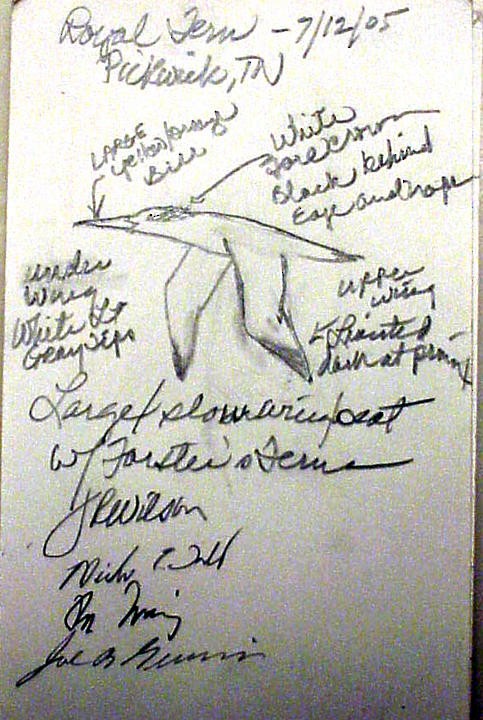 Royal Tern - 7/12/05
Pickwick, TN
LARGE
yellow/orange
Bill
White
Fore crown
Black behind
Eye and nape
under
wing
White to
Gray tips
upper
wing
dark at
Large/slow wingbeat
w/ Forster's Terns
JRWilson